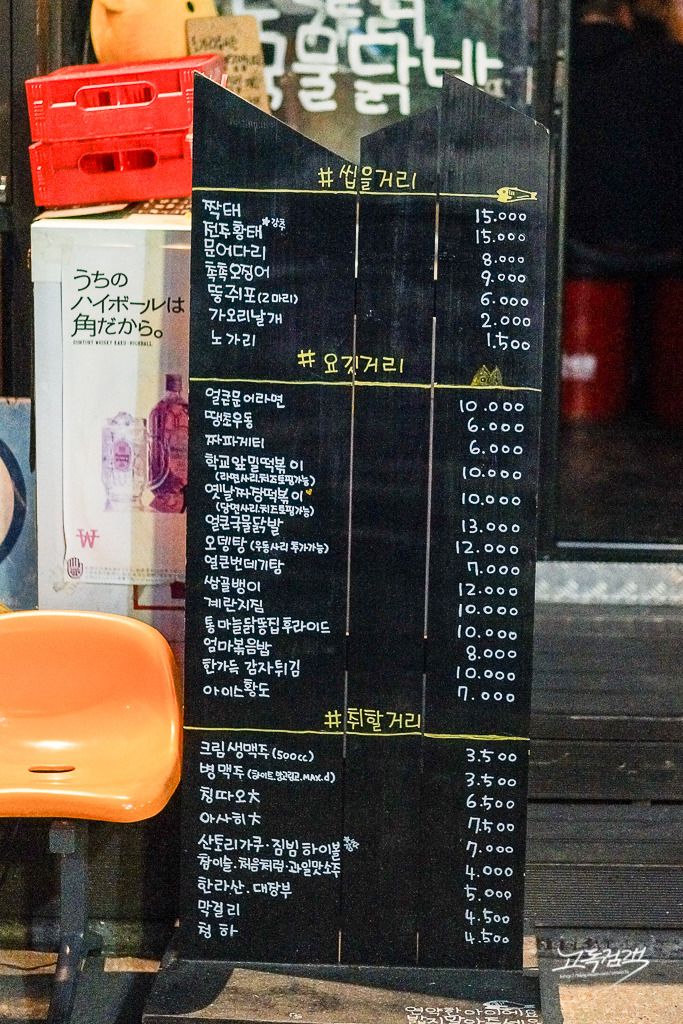 국물닭발
#씹을거리
짝태 15.000
전주황태 *강추 15.000
문어다리 8.000
촉촉오징어 9.000
뚱쥐포(2마리) 6.000
가오리날개 2.000
노가리 1.500
#요깃거리
얼큰문어라면 10.000
땡초우동 6.000
짜파게티 6.000
학교앞밀떡볶이 10.000
(라면사리.치즈토핑가능)
옛날짜장떡볶이 10.000
(당면사리.치즈토핑가능)
얼큰국물닭발 13.000
오뎅탕(우동사리 투가가능) 12.000
얼큰번데기탕 7.000
쌈골뱅이 12.000
계란지짐 10.000
통마늘닭똥집후라이드 10.000
엄마볶음밥 8.000
한가득 감자튀김 10.000
아이스황도 7.000
#취할거리
크림생맥주(500cc) 3.500
병맥주(하이트.맥스.MAX.d) 3.500
칭따오大 6.500
아사히大 7.500
산토리가쿠·짐빔하이볼 7.000
참이슬.처음처럼.과일맛소주 4.000
한라산.대장부 5.000
막걸리 4.500
청하 4.500
うちの
ハイボールは
角だから。
SUNTORY WHISKY KAKU-HIGHBALL
고독컴퍼